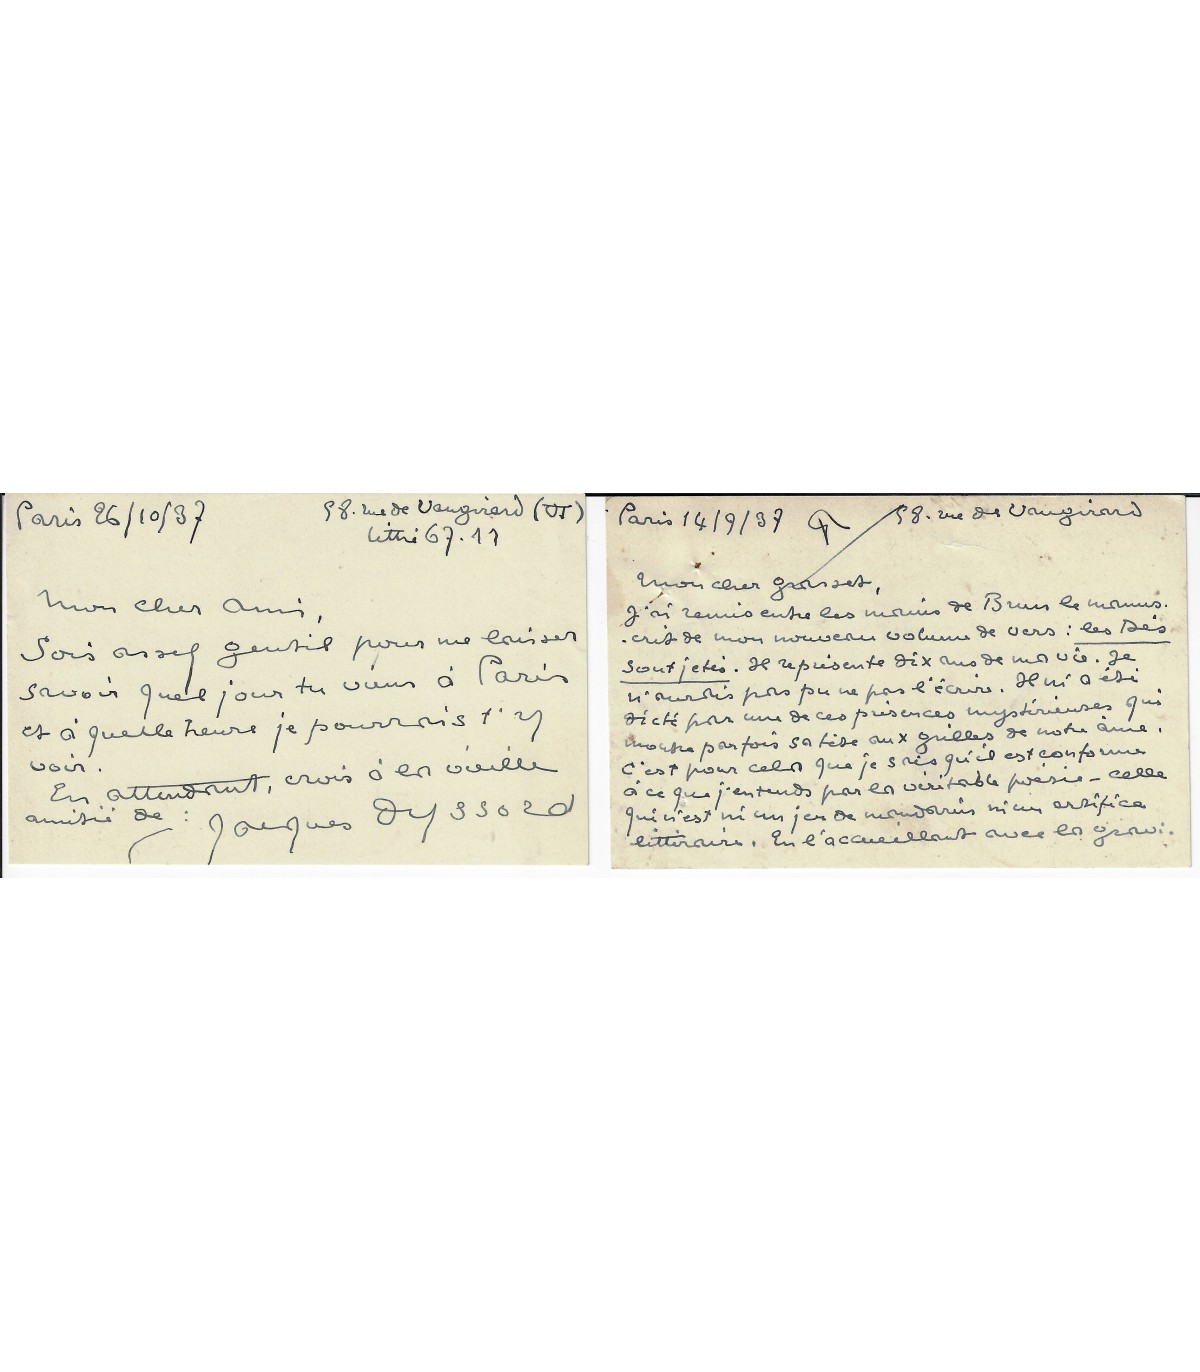 Paris 26/10/37
58. rue de Vaugirard (VI)
littré 67.11
Mon cher ami,
Sois assez gentil pour me laisser
savoir quel jour tu viens à Paris
et à quelle heure je pourrais t'y
voir.
En attendant, crois à la vieille
amitié de :
Jacques Dyssord
Paris 14/9/37
58. rue de Vaugirard
Mon cher grasset,
J'ai remis entre les mains de Brun le manus-
-crit de mon nouveau volume de vers : les Dés
sont jetés. Il représente dix ans de ma vie. Je
n'aurais pas pu ne pas l'écrire. Il m'a été
dicté par une de ces présences mystérieuses qui
montre parfois sa tête aux grilles de notre âme.
C'est pour cela que je sais qu'il est conforme
à ce que j'entends par la véritable poésie – celle
qui n'est ni un jeu de mandarin ni un artifice
littéraire. En l'accueillant avec la gravi-